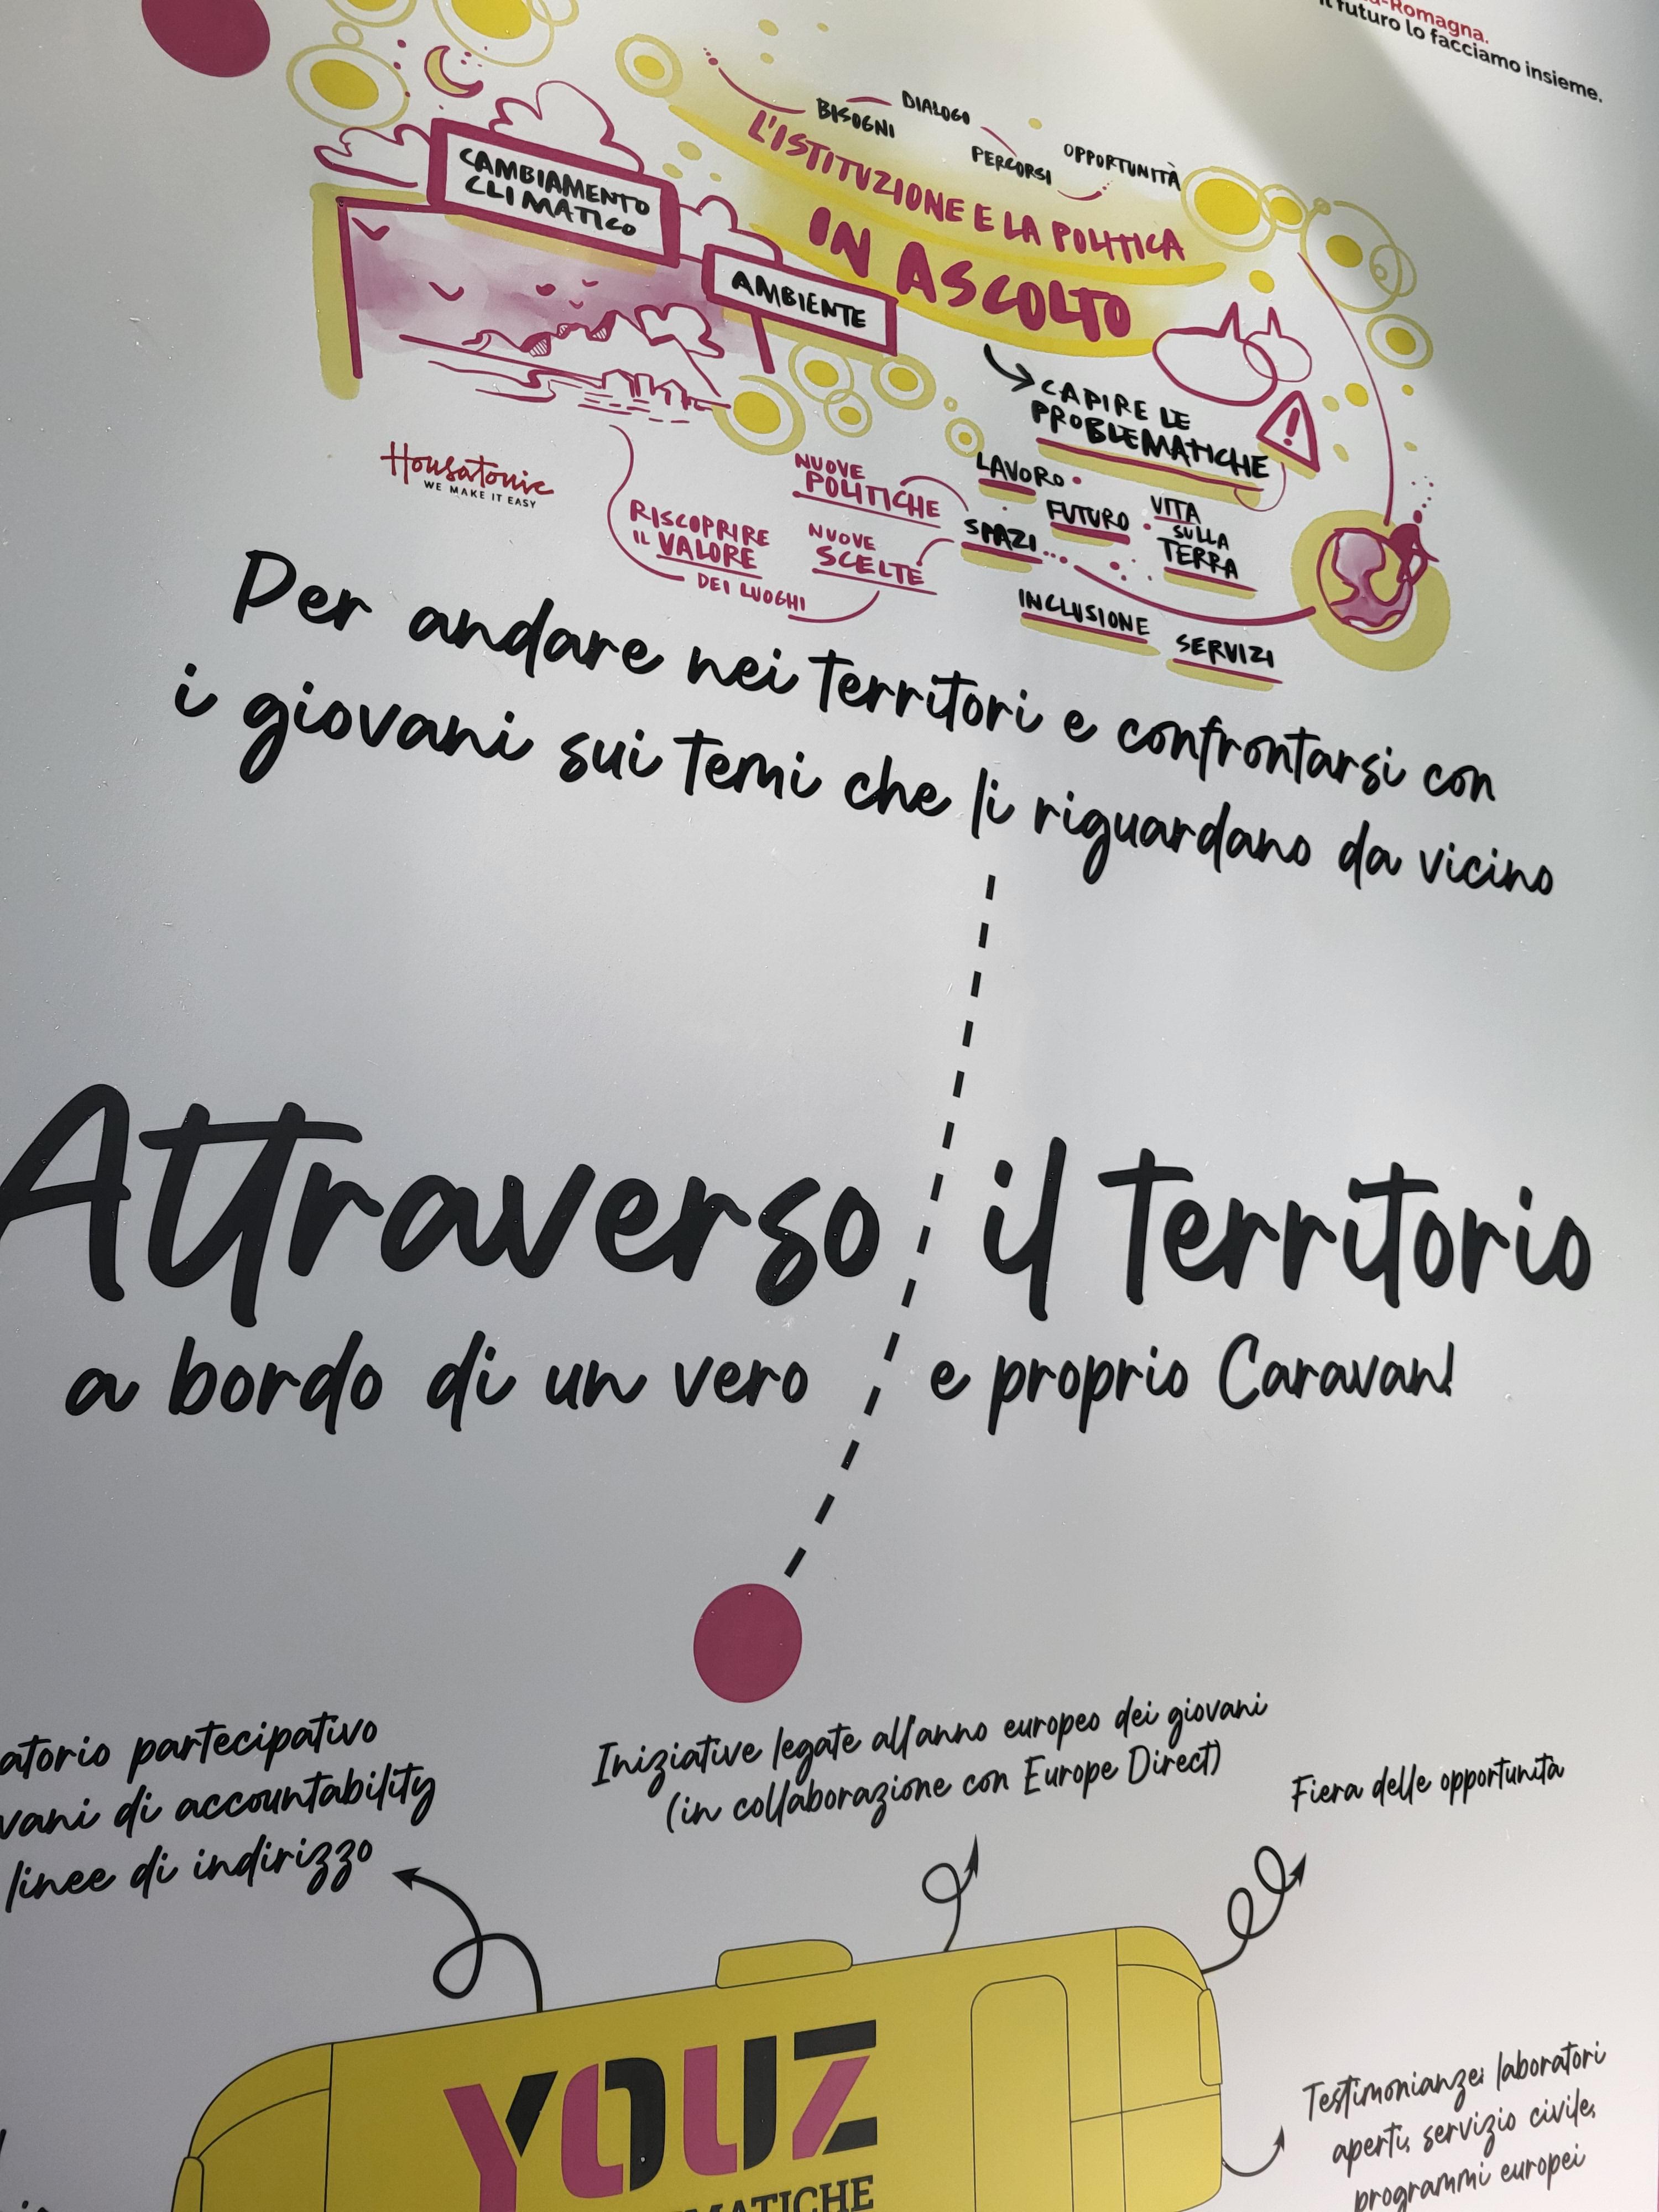 -Romagna.
il futuro lo facciamo insieme.
BISOGNI
DIALOGO
PERCORSI
OPPORTUNITÀ
L'ISTITUZIONE E LA POLITICA
IN ASCOLTO
CAMBIAMENTO
CLIMATICO
AMBIENTE
CAPIRE LE
PROBLEMATICHE
Housatonic
WE MAKE IT EASY
RISCOPRIRE
IL VALORE
DEI LUOGHI
NUOVE
POLITICHE
NUOVE
SCELTE
LAVORO
SPAZI
FUTURO
VITA
SULLA
TERRA
INCLUSIONE
SERVIZI
Per andare nei territori e confrontarsi con
i giovani sui temi che li riguardano da vicino
Attraverso il territorio
a bordo di un vero e proprio Caravan!
atorio partecipativo
vani di accountability
linee di indirizzo
Iniziative legate all'anno europeo dei giovani
(in collaborazione con Europe Direct)
Fiera delle opportunità
YOUZ
MATICHE
Testimonianze: laboratori
aperti, servizio civile,
programmi europei